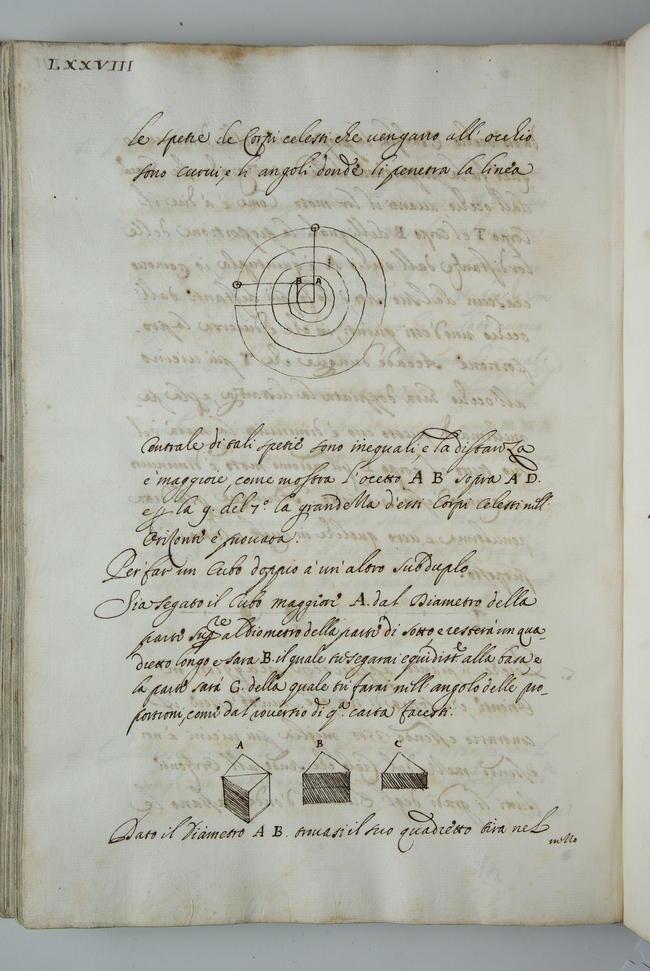 LXXVIII
le spetie de Corpi celesti che vengano all' occhio
sono curvi, e li angoli donde li penetra la linea
B A
centrale di tali spetie sono inequali, e la distanza
è maggiore, come mostra l'ocetto A B sopra A D.
e la 9. del 7º la grandezza d'essi Corpi Celesti nell'
Orizonte è provata.
Per far un Cubo doppio à un' altro subduplo
Sia segato il Cubo maggiore A. dal Diametro della
parte supre al diometro della parte di sotto e resterà un qua-
dretto longo e sara B. il quale tu segarai equidistte alla basa e
la parte sará C. della quale tu farai nell' angolo delle pro-
portioni, come dal roverscio di qa. carta facesti.
A B C
Dato il Diametro A B. truasi il suo quadretto tira nel
mezzo